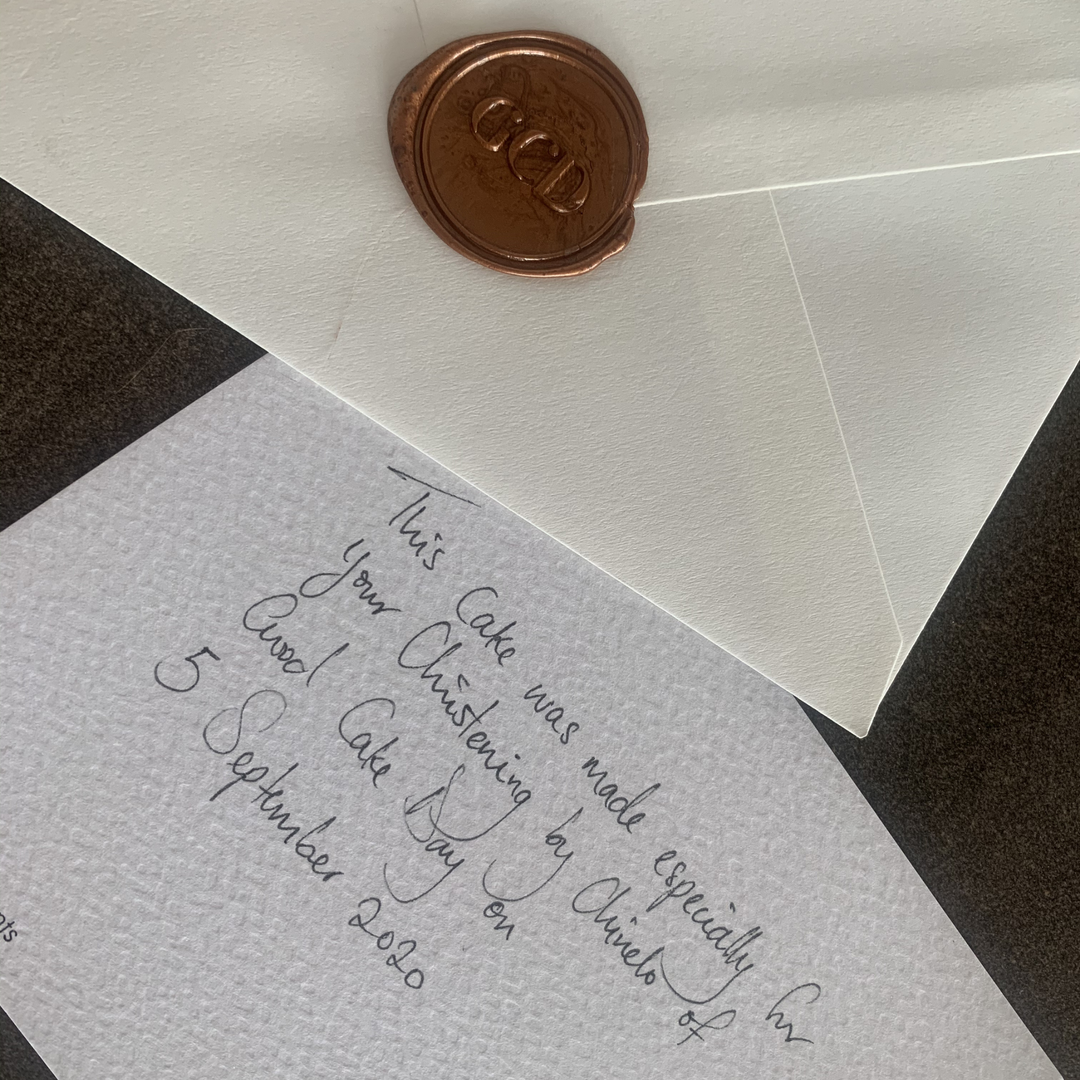 GCD
This Cake was made especially for
your Christening by Chinelo of
Good Cake Day on
5 September 2020